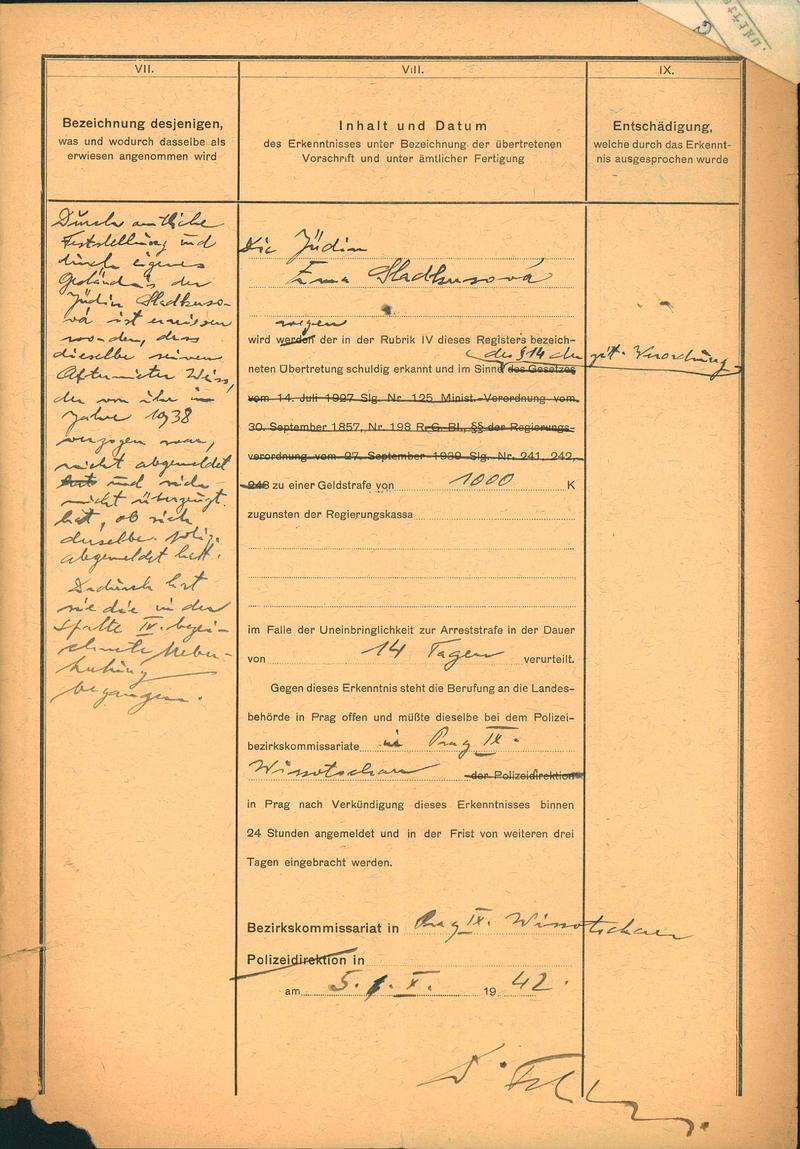 VII.
Bezeichnung desjenigen,
was und wodurch dasselbe als
erwiesen angenommen wird
Durch amtliche
Feststellung und
durch eigenes
Geständnis der
Jüdin Sladkuso-
vá ist erwiesen
worden, dass
dieselbe seinen
Aftermieter Weiss,
der von ihr im
Jahre 1938
verzogen war,
nicht abgemeldet
hat und sich
nicht überzeugt
hat, ob sich
derselbe poliz.
abgemeldet hat.
Dadurch hat
sie die in der
Spalte IV. bezei-
chnete Ueber-
tretung
begangen.
VIII.
Inhalt und Datum
des Erkenntnisses unter Bezeichnung der übertretenen
Vorschrift und unter ämtlicher Fertigung
Die Jüdin
Sladkusová
wegen
wird werden der in der Rubrik IV dieses Registers bezeich-
des § 14 der zit. Verordnung
neten Übertretung schuldig erkannt und im Sinne des Gesetzes
vom 14. Juli 1927 Slg. Nr. 125 Minist.-Verordnung vom
30. September 1857, Nr. 198 R.-G. Bl., §§ der Regierungs-
verordnung vom 27. September 1939 Slg. Nr. 241, 242,
243 zu einer Geldstrafe von 1000 K
zugunsten der Regierungskassa
im Falle der Uneinbringlichkeit zur Arreststrafe in der Dauer
von 14 Tagen verurteilt.
Gegen dieses Erkenntnis steht die Berufung an die Landes-
behörde in Prag offen und müßte dieselbe bei dem Polizei-
bezirkskommissariate in Prag IX.
Wissotschan der Polizeidirektion
in Prag nach Verkündigung dieses Erkenntnisses binnen
24 Stunden angemeldet und in der Frist von weiteren drei
Tagen eingebracht werden.
Bezirkskommissariat in Prag IX. Wissotschan
Polizeidirektion in
am 5. X. 19 42.
IX.
Entschädigung,
welche durch das Erkennt-
nis ausgesprochen wurde